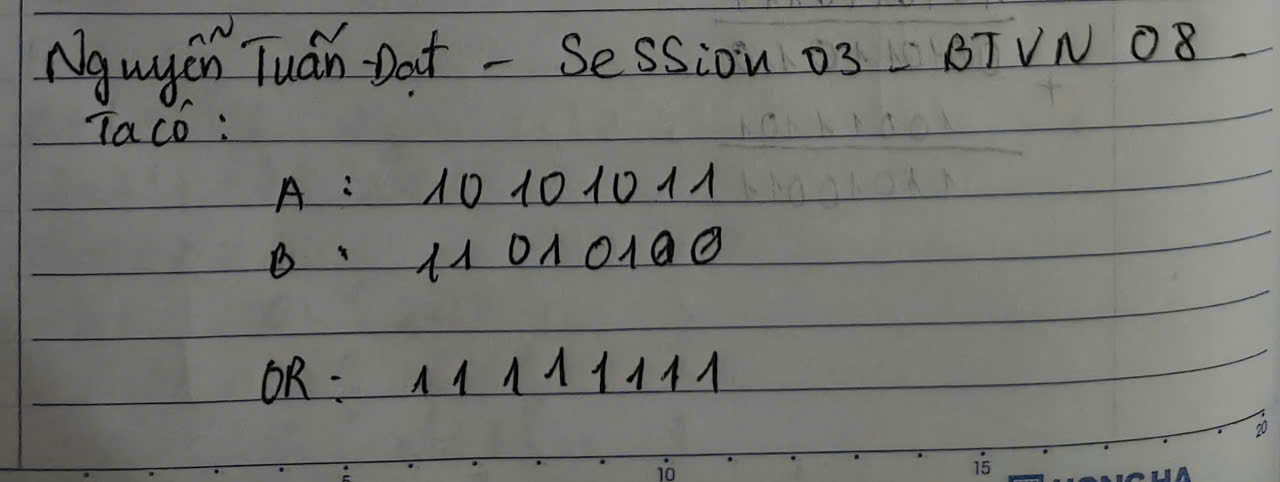 Nguyễn Tuấn Đạt - Session 03 - BTVN 08
Ta có :
A : 10101011
B : 11010100
OR : 11111111
5 10 15 20
HONG HA